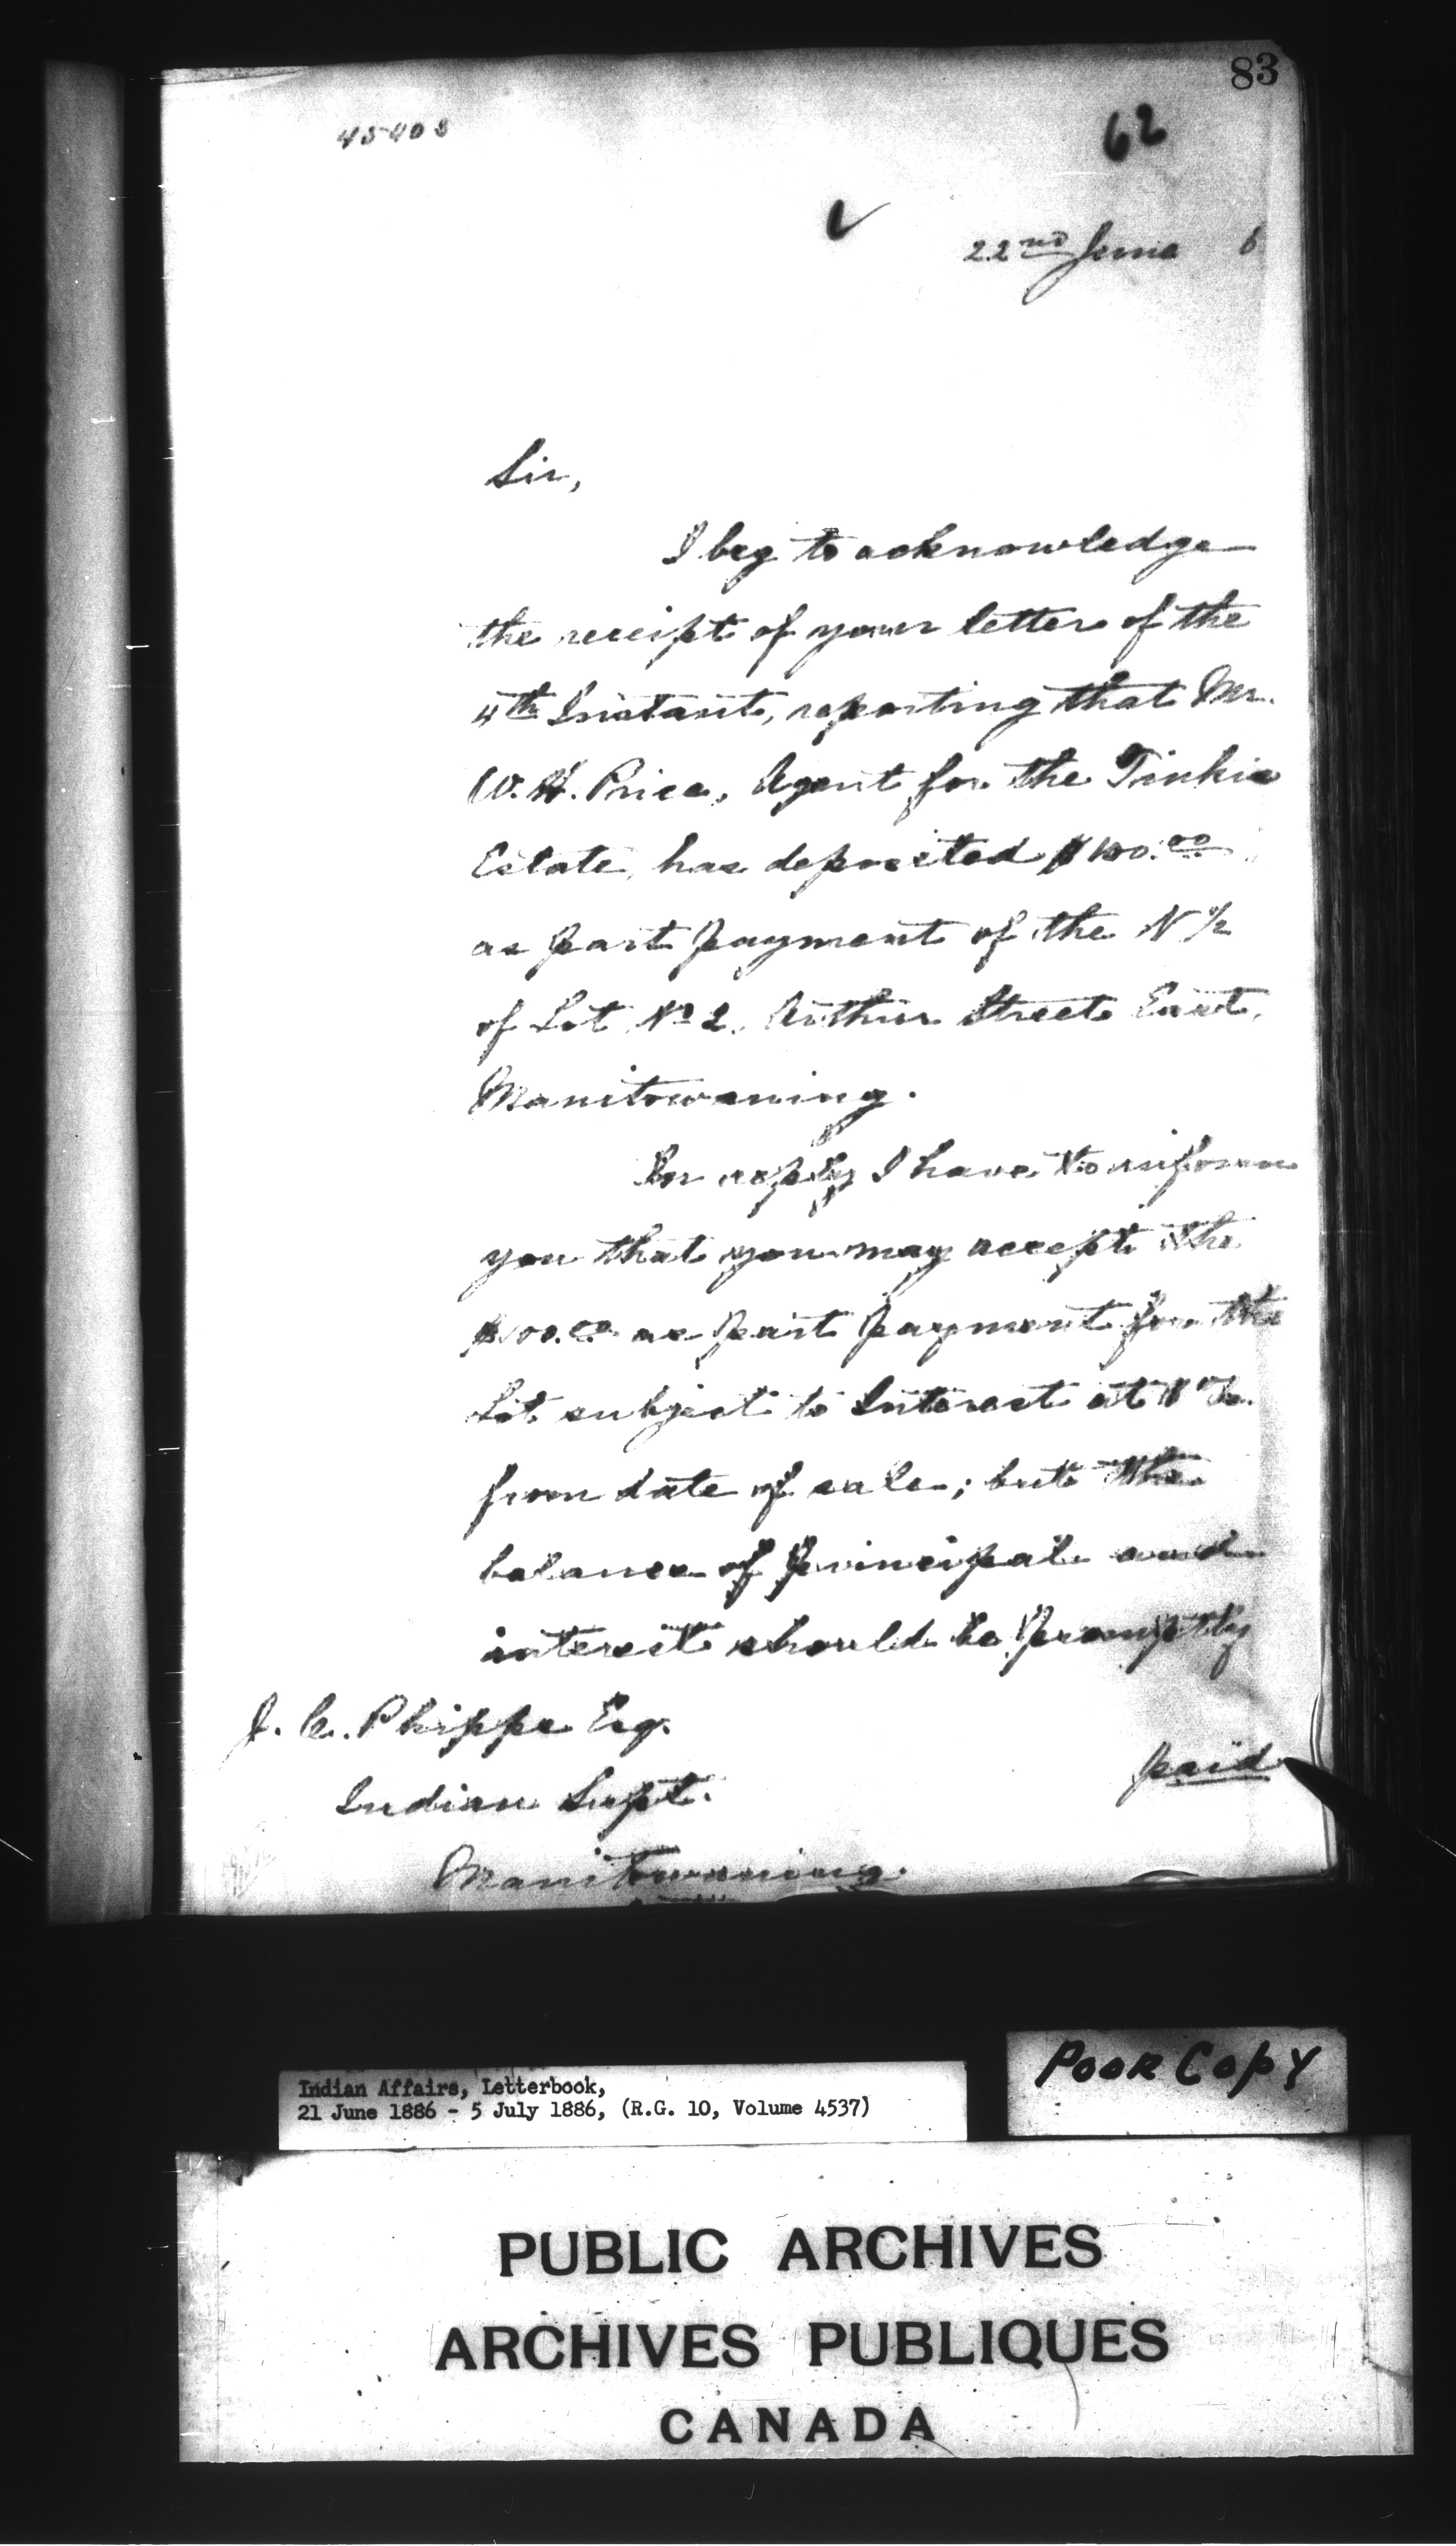 83
45408
62
22nd June 6
Sir,
I beg to acknowledge
the receipt of your letter of the
4th Instant, reporting that Mr.
W. H. Price, Agent for the Tinkis
Estate, has deposited $100.00
as part payment of the N 1/2
of Lot No 2. Arthur Street East,
Manitowaning.
In reply I have to inform
you that you may accept the
$100.00 as part payment for the
Lot subject to Interest at
from date of sale; but the
balance of principal and
interest should be promptly
J. C. Phipps Esq.
paid
Indian Supt.
Manitowaning.
POOR COPY
Indian Affairs, Letterbook,
21 June 1886 - 5 July 1886, (R.G. 10, Volume 4537)
PUBLIC ARCHIVES
ARCHIVES PUBLIQUES
CANADA